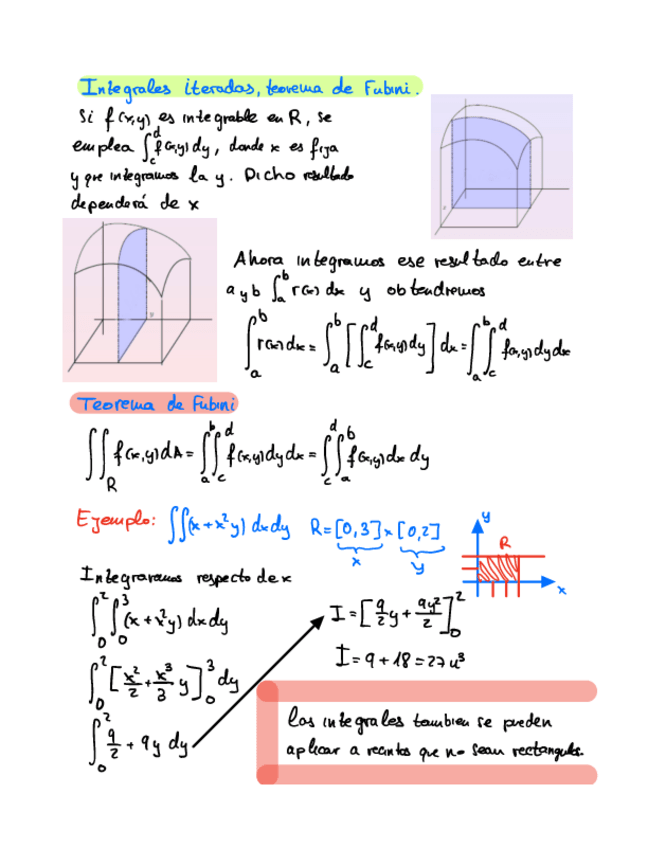 Integrales iteradas, teorema de Fubini.
Si f(x,y) es integrable en R, se
emplea ∫_c^d f(x,y) dy, donde x es fija
y que integramos la y. Dicho resultado
dependerá de x
Ahora integramos ese resultado entre
a y b ∫_a^b r(x) dx y obtendremos
∫_a^b r(x) dx = ∫_a^b [∫_c^d f(x,y) dy] dx = ∫_a^b ∫_c^d f(x,y) dy dx
Teorema de Fubini
∬_R f(x,y) dA = ∫_a^b ∫_c^d f(x,y) dy dx = ∫_c^d ∫_a^b f(x,y) dx dy
Ejemplo: ∬(x + x²y) dx dy R = [0,3] × [0,2]
x y
y
R
x
Integraramos respecto de x
∫_0^2 ∫_0^3 (x + x²y) dx dy
∫_0^2 [x²/2 + x³/3 y]_0^3 dy
∫_0^2 9/2 + 9y dy
I = [9/2 y + 9y²/2]_0^2
I = 9 + 18 = 27 u³
Las integrales tambien se pueden
aplicar a recintos que no sean rectangulos.